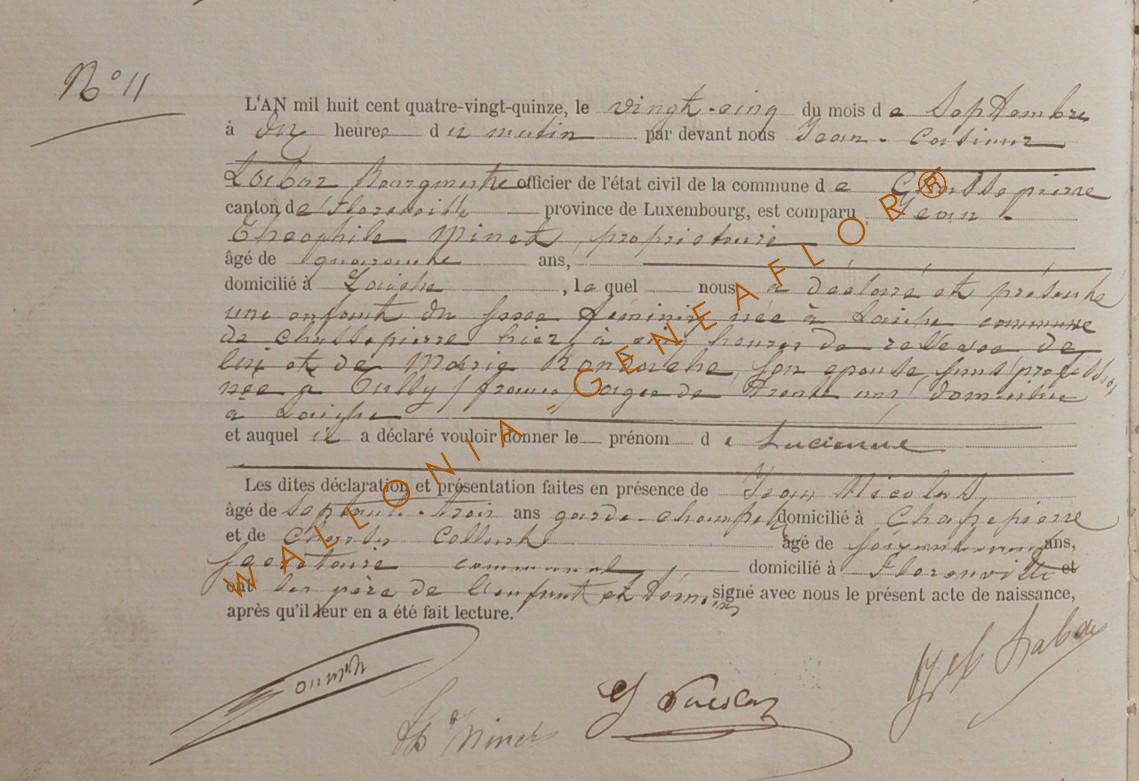 N° 11
L'AN mil huit cent quatre-vingt-quinze, le vingt-cinq du mois de Septembre
à dix heures du matin par devant nous Jean-Casimir
Bourgmestre officier de l'état civil de la commune de Chassepierre
canton de Florenville province de Luxembourg, est comparu Jean-
Théophile Minet, propriétaire
âgé de quarante ans,
domicilié à Laiche, lequel nous a déclaré et présenté
une enfant du sexe féminin née à Laiche commune
de Chassepierre hier, à heures de relevée de
lui et de Marie son épouse sans profession
née à (france) âgée de trente ans, domiciliée
à Laiche
et auquel il a déclaré vouloir donner le prénom de Lucienne
Les dites déclaration et présentation faites en présence de Jean Nicolas,
âgé de septante-trois ans garde-champêtre domicilié à Chassepierre
et de Charles âgé de ans,
secrétaire communal domicilié à Florenville et
ont les père de l'enfant et témoins signé avec nous le présent acte de naissance,
après qu'il leur en a été fait lecture.
Th Minet
WALLONIA-GENEAFLOR®